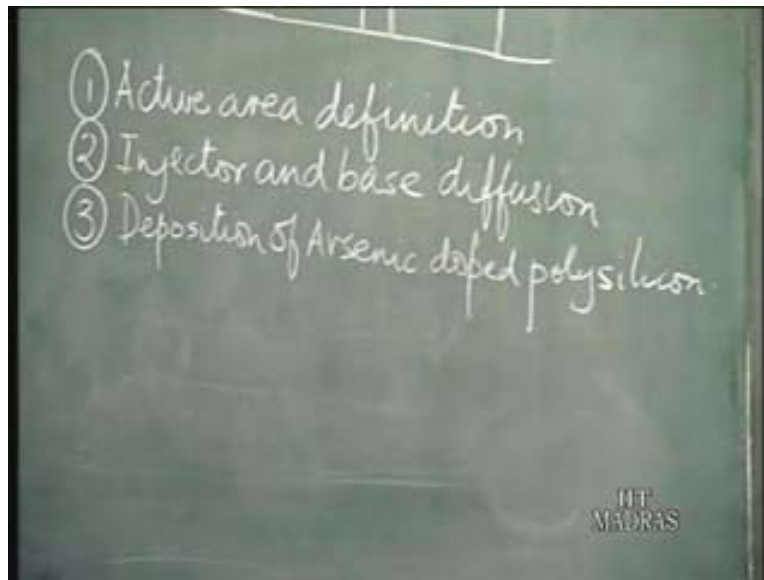 ① Active area definition
② Injector and base diffusion
③ Deposition of Arsenic doped polysilicon.
IIT
MADRAS